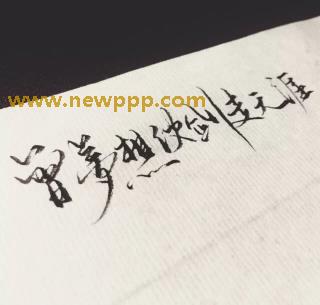 www.newppp.com
曾梦想仗剑走天涯